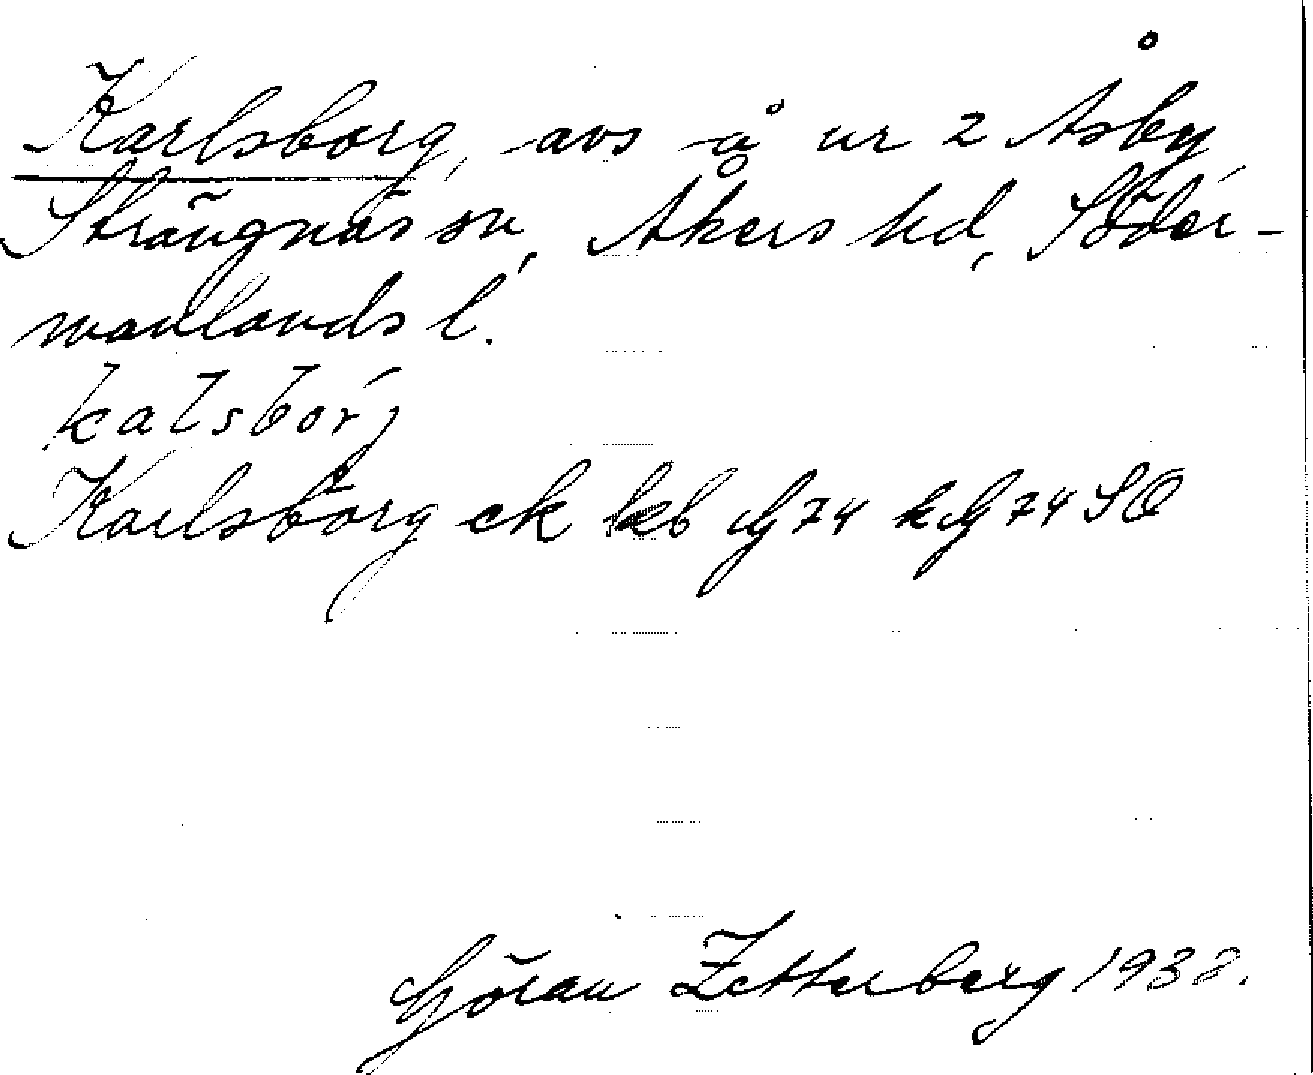 Karlsborg, avs å ur 2 Åsby
Strängnäs sn, Åkers hd, Söder-
manlands l.
kalsborj
Karlsborg ek kb G74 kG74SO
Göran Zetterberg 1938.